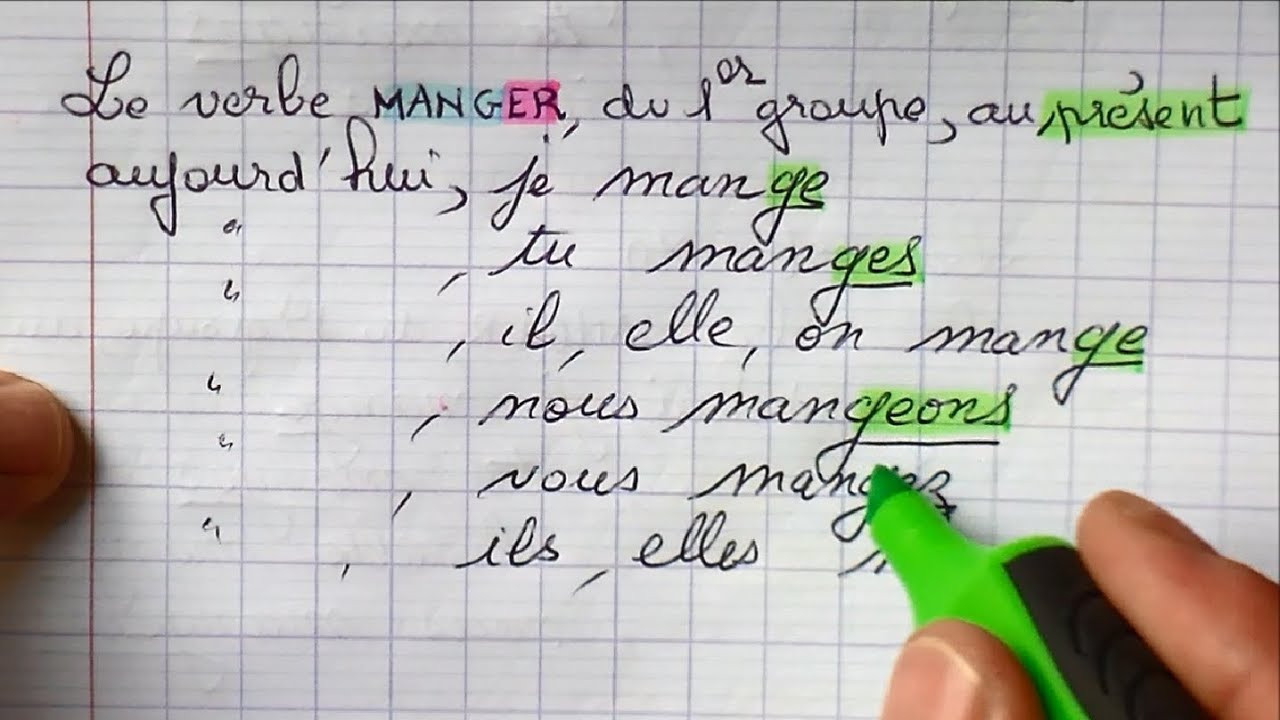 Le verbe MANGER, du 1er groupe, au présent
aujourd'hui, je mange
" , tu manges
" , il, elle, on mange
" , nous mangeons
" , vous mangez
" , ils, elles